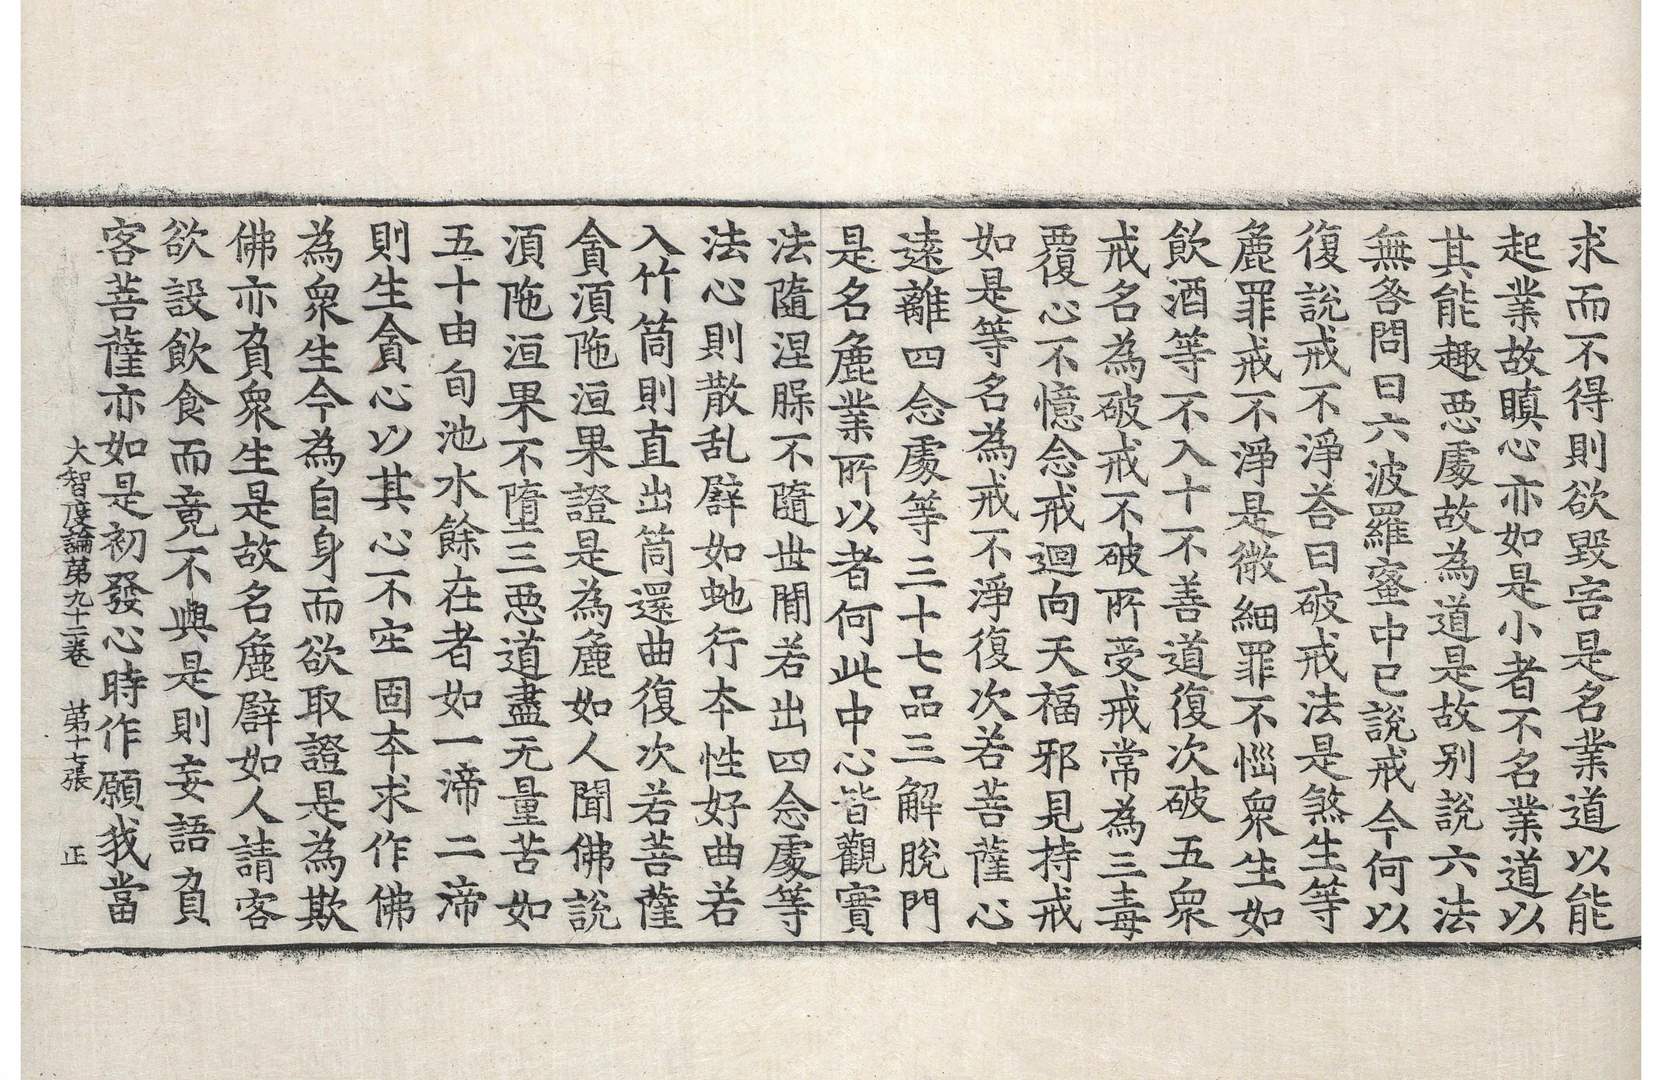 求而不得則欲毀害是名業道以能
起業故瞋心亦如是小者不名業道以
其能趣惡處故為道是故別說六法
無咎問曰六波羅蜜中已說戒今何以
復說戒不淨荅曰破戒戒法是煞生等
麁罪戒不淨是微細罪不惱衆生如
飲酒等不入十不善道復次破五衆
戒名為破戒不破所受戒常為三毒
覆心不憶念戒迴向天福邪見持戒
如是等名為戒不淨復次若菩薩心
遠離四念處等三十七品三解脫門
是名麁業所以者何此中心皆觀實
法隨涅槃不隨世間若出四念處等
法心則散乱譬如虵行夲性好曲若
入竹筒則直出筒還曲復次若菩薩
貪湏陁洹果證是為麁如人聞佛說
湏陁洹果不墮三惡道盡无量苦如
五十由旬池水餘在者如一渧二渧
則生貪心以其心不牢固夲求作佛
為衆生今為自身而欲取證是為欺
佛亦負衆生是故名麁譬如人請客
欲設飲食而竟不與是則妄語負
客菩薩亦如是初發心時作願我當
大智度論第九十二卷　第十七張　正